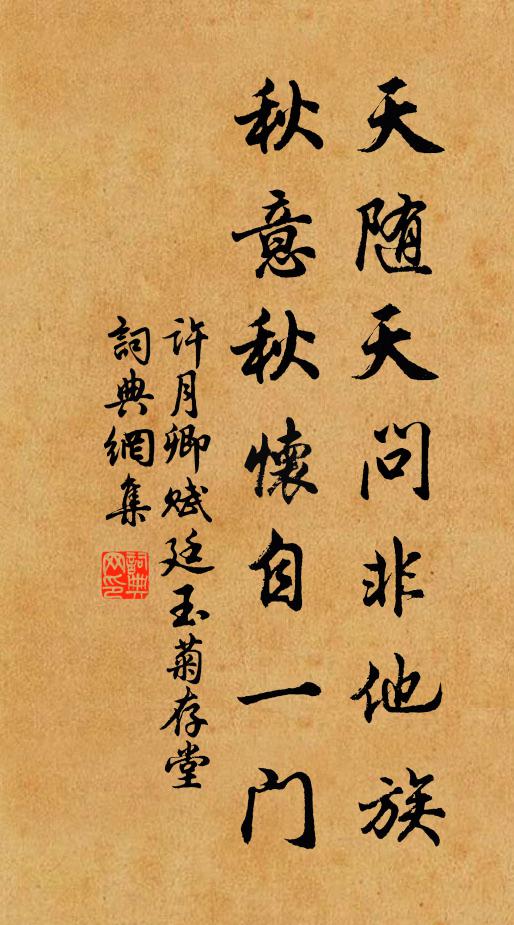 天随天问非他族
秋意秋懷自一门
许月卿赋廷玉菊存堂
詞典網集
詞典网印